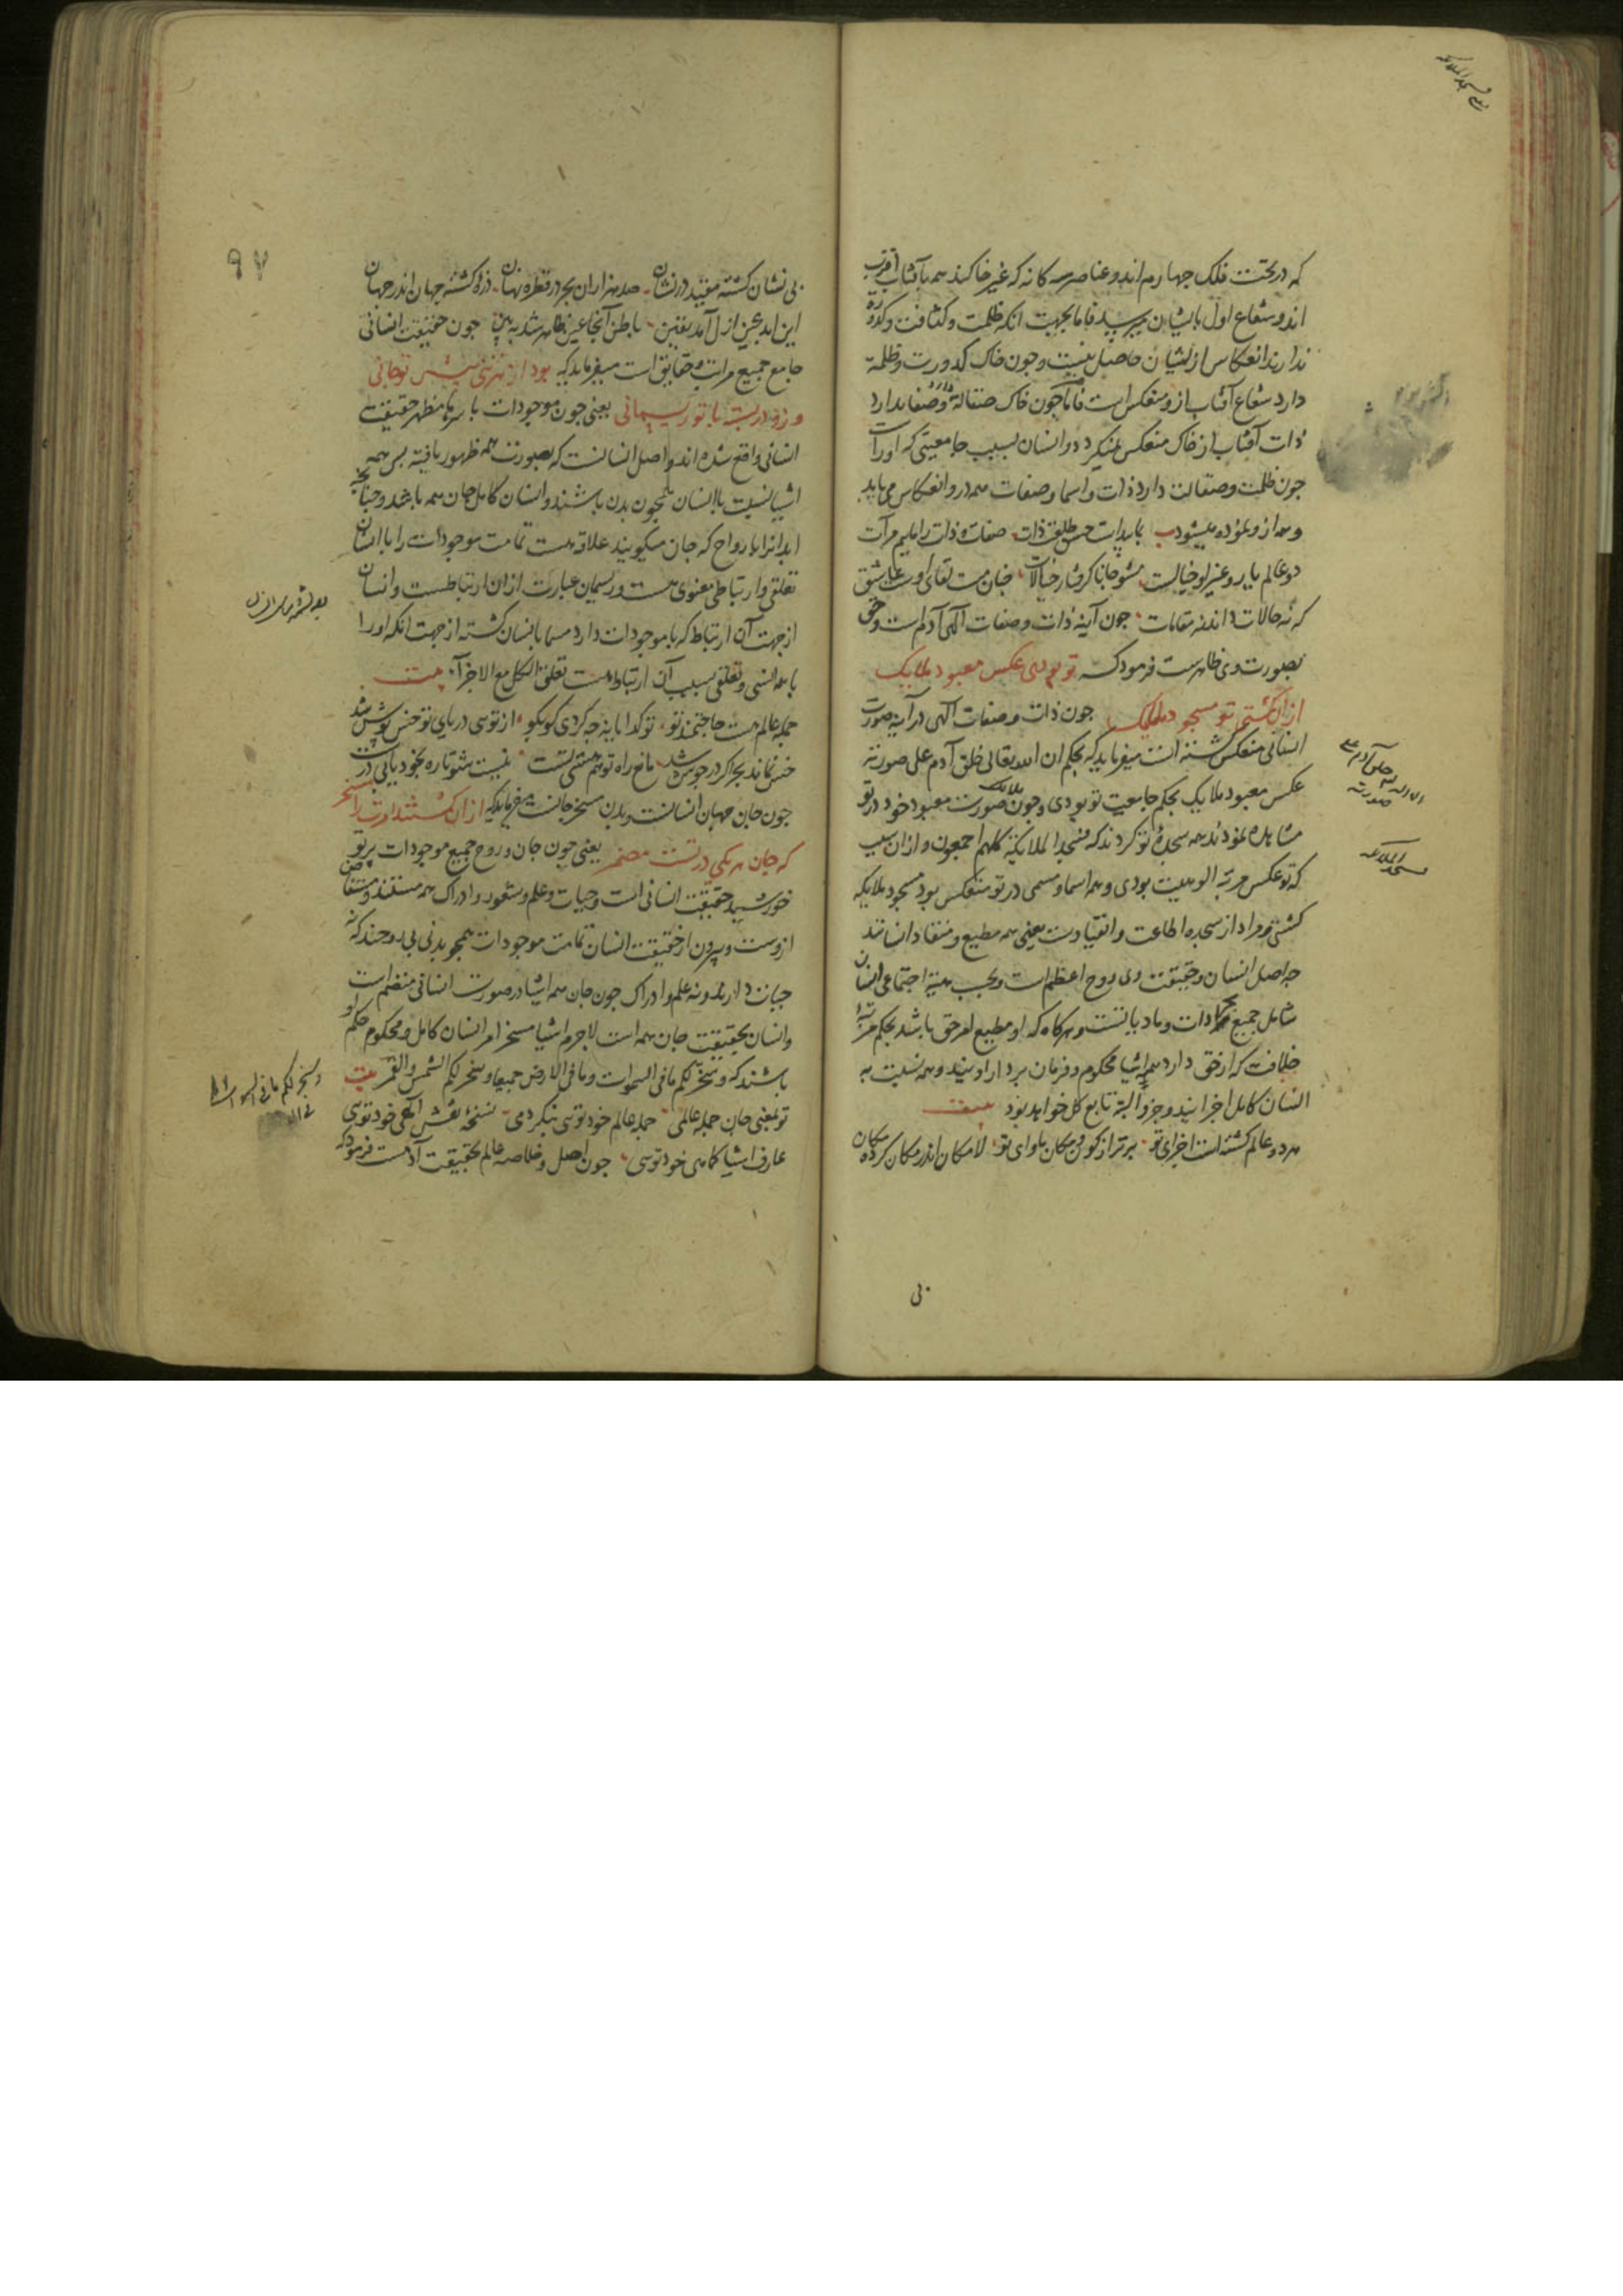 که در تحت فلک چهارم اند و عناصر سه کانه که غیر خاکند همه بآفتاب اقرب
اند و شعاع اول بایشان میرسد فاما بجهت انکه ظلمت و کثافت و کدورة
ندارند انعکاس از ایشان حاصل نیست و چون خاک کدورت و ظلمة
دارد شعاع آفتاب ازو منعکس است فاما چون خاک صقالة و صفا ندارد
ذات آفتاب از خاک منعکس نمیکردد و انسان بسبب جامعیتی که اورات
چون ظلمت و صقالت دارد ذات و اسما و صفات همه درو انعکاس می یابد
و همه ازو نموده میشود
دو عالم یار و غیر او خیالست مشو جانا کرفتار خیالات
که نه حالات داند نه مقامات چون آینه ذات و صفات الهی آدم است و حق
بصورت وی ظاهرست فرمود که تو بودی عکس معبود ملایک
از ان کشتی تو مسجود ملایک چون ذات و صفات الهی در آینه صورت
انسانی منعکس شده است میفرماید که بحکم ان الله تعالی خلق آدم علی صورته
عکس معبود ملایک بحکم جامعیت تو بودی و چون ملایک صورت معبود خود در تو
مشاهده نمودند همه سجده تو کردند که فسجد الملایکة کلهم اجمعون و از ان سبب
که تو عکس مرتبه الوهیت بودی و همه اسما و مسمی در تو منعکس بود مسجود ملایکه
کشتی و مراد از سجده اطاعت و انقیادست یعنی همه مطیع و منقاد انسانند
چه اصل انسان و حقیقت وی روح اعظم است و بحسب هیئة اجتماعی انسان
شامل جمیع مجردات و مادیاتست و هرکاه که او مطیع امر حق باشد بحکم مرتبه
خلافت که از حق دارد همه اشیا محکوم و فرمان بردار اویند و همه نسبت به
انسان کامل اجزا یند و جزو البته تابع کل خواهد بود بیت
هر دو عالم کشته است اجزای تو برتر از کون و مکان ماوای تو لا مکان اندر مکان کرده مکان
بی
ان الله خلق آدم علی
صورته
فسجد الملائکه
۹۷
بی نشان کشته مقید در نشان صد هزاران بحر در قطره نهان ذره کشته جهان اندر جهان
این ابد عین ازل آمد یقین باطن آنجا عین ظاهر شد ببین چون حقیقت انسانی
جامع جمیع مراتب و حقایق است میفرماید که بود از هر تنی پیش تو جانی
وزو در بسته با تو ریسمانی یعنی چون موجودات باسرها مظهر حقیقت
انسانی واقع شده اند و اصل انسانست که بصورت همه ظهور یافته پس همه
اشیا نسبت با انسان همچون بدن باشند و انسان کامل جان همه باشد و چنانچه
ابدانرا با رواح که جان میکویند علاقه هست تمامت موجودات را با انسان
تعلقی و ارتباطی معنوی هست و ریسمان عبارت از ان ارتباطست و انسان
از جهت آن ارتباط که با موجودات دارد مسما بانسان کشته از جهت انکه او را
با همه انسی و تعلقی بسبب آن ارتباط هست تعلق الکل مع الاجزا بیت
جمله عالم هست حاجتمند تو تو کدایانه چه کردی کو بکو از تویی دریای تو خس پوش شد
خس نماند بحر اکر در جوش شد مانع راه تو هم هستی تست نیست شو تا ره بخود یابی درست
چون جان جهان انسانست و بدن مسخر جانست میفرماید که از ان کشتند امرت را مسخر
که جان هر یکی در تست مضمر یعنی چون جان و روح جمیع موجودات پرتو
خورشید حقیقت انسانی است و حیات و علم و شعور و ادراک همه مستفاد و مستفاض
ازوست و بیرون از حقیقت انسان تمامت موجودات همچو بدنی بی روحند که نه
حیات دارند و نه علم و ادراک چون جان همه اشیا در صورت انسانی منضم است
و انسان بحقیقت جان همه است لاجرم اشیا مسخر امر انسان کامل و محکوم حکم او
باشند که و سخر لکم ما فی السموات و ما فی الارض جمیعا و سخر لکم الشمس و القمر بیت
تو بمعنی جان جمله عالمی جمله عالم خود تویی بنکر دمی نسخه نقش الهی خود تویی
عارف اشیا کماهی خود تویی چون اصل و خلاصه عالم بحقیقت آدمست فرمود که
و سخر لکم ما فی السموات